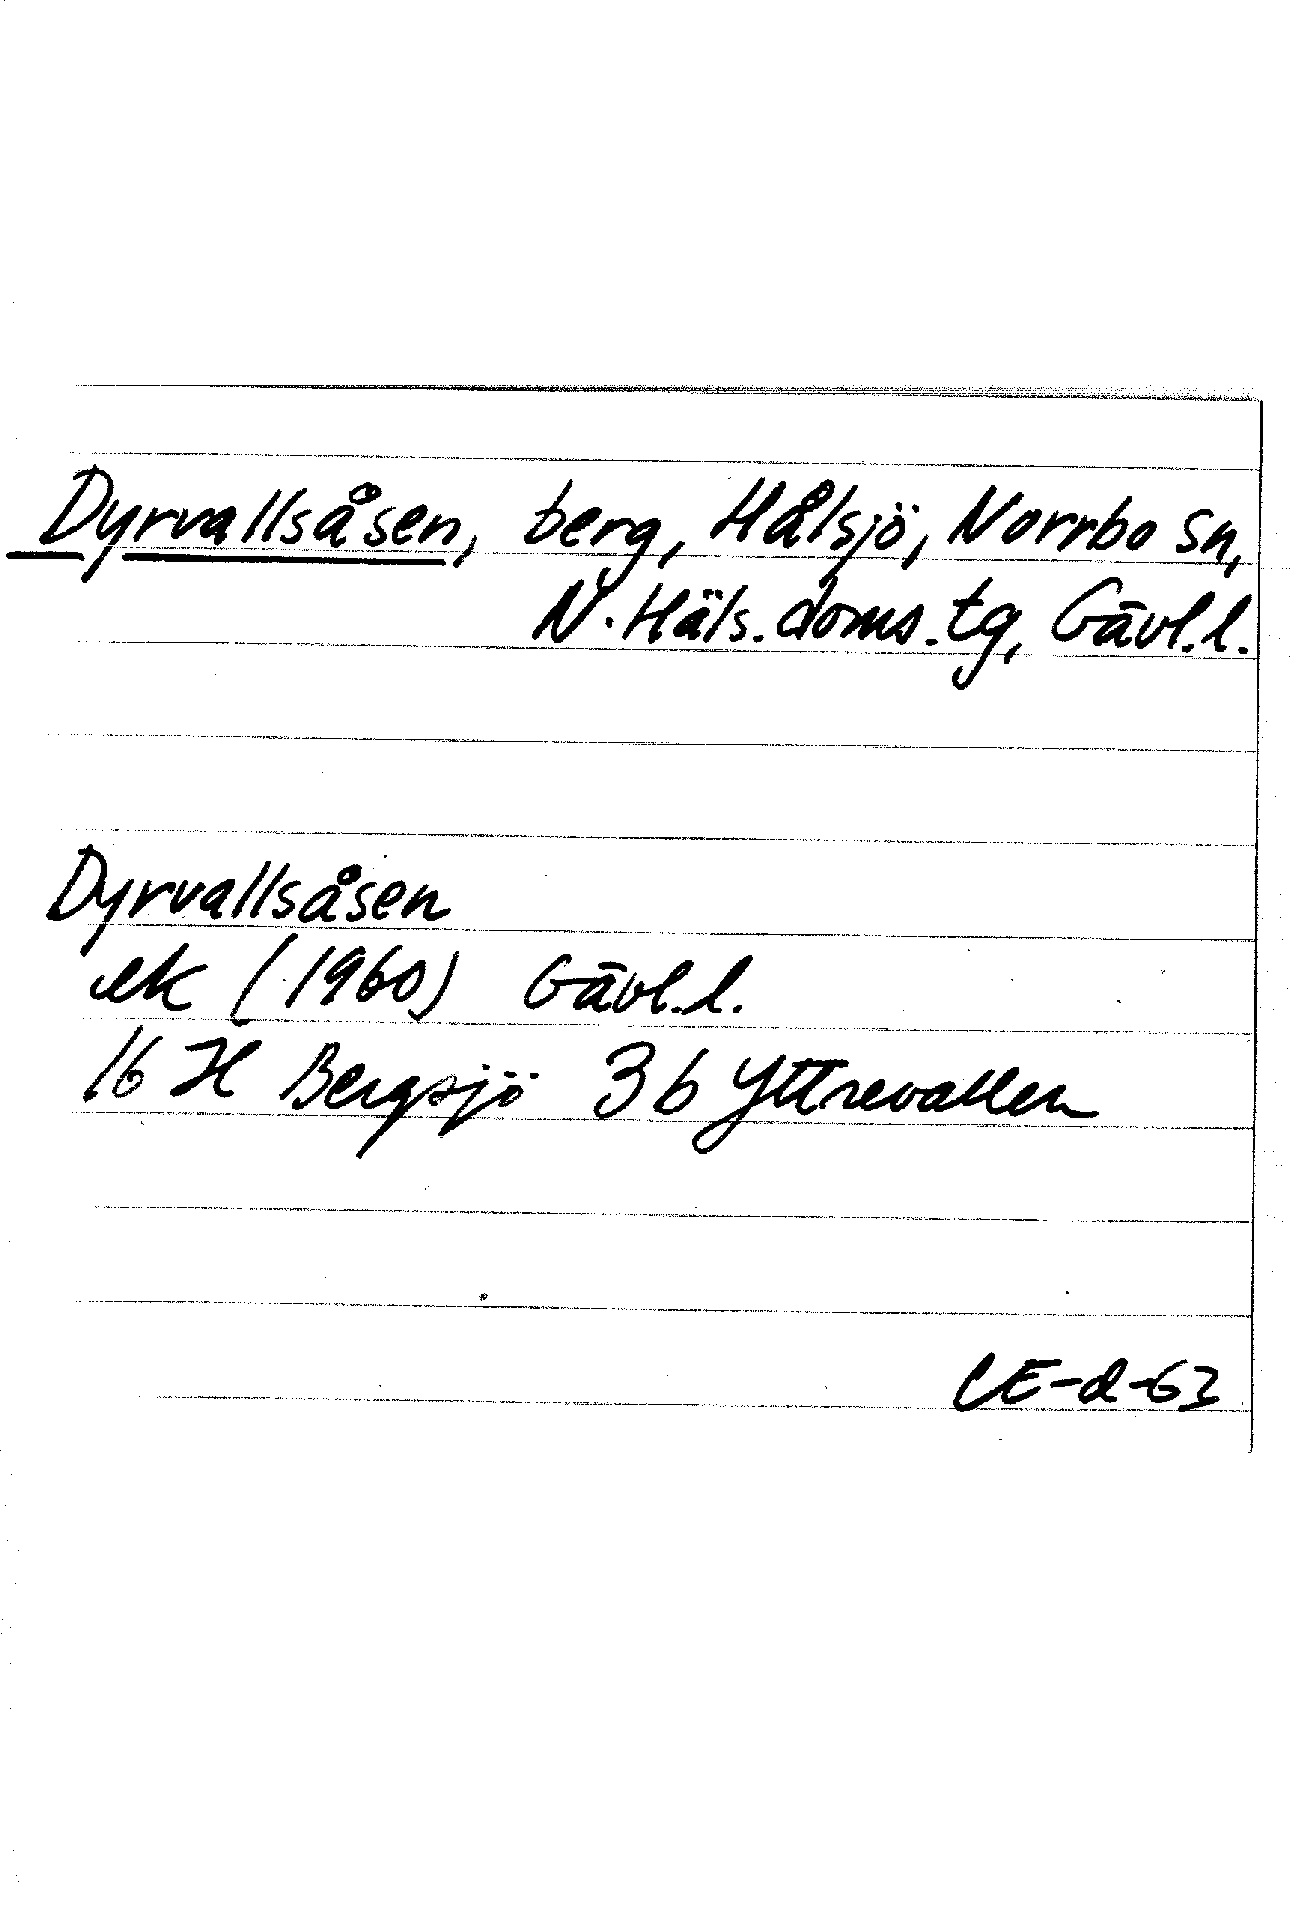 Dyrvallsåsen, berg, Hålsjö, Norrbo sn,
N. Häls. doms. tg, Gävl. l.
Dyrvallsåsen
ek (1960) Gävl. l.
16 H Bergsjö 3b Yttrevallen
CE-d-63